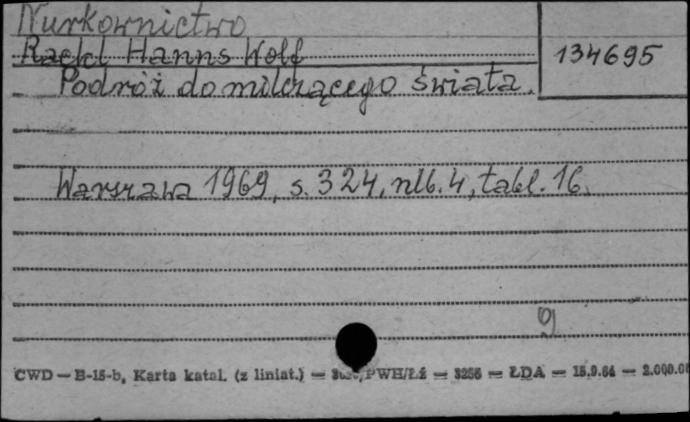 Nurkownictwo
Rackl Hanns Wolf
134695
Podróż do milczącego świata.
Warszawa 1969, s. 324, nlb. 4, tabl. 16.
g
CWD — B-15-b, Karta katal. (z liniat.) — PWH/Łź — 3256 — ŁDA — 15.9.64 — 2.000.0